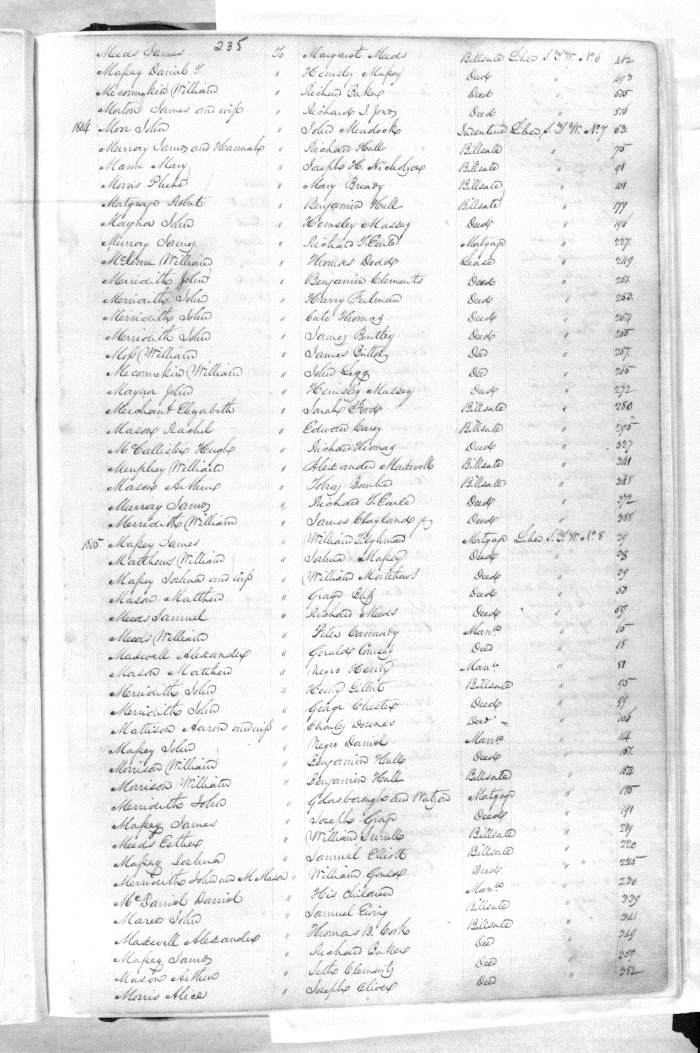 235
Meeds James To Margaret Meeds Billsale Liber S.T.W. No 6 462
Maſsey Daniel T. " Hemsley Maſsey Deed " 493
Mecomekin William " Richard Baker Deed " 535
Morton James and wife " Richard I. Jones Deed " 576
1804 Moor John " John Murdock Indenture Liber S.T.W. No 7 53
Murroy James and Hannah " Richard Hall Billsale " 75
Mann Mary " Joseph H. Nicholson Billsale " 91
Morris Phebe " Mary Bready Billsale " 101
Benjamin Hall Billsale " 179
John " Hemsley Massey Deed " 196
Murroy James " Richard T. Earle Mortgage " 227
William " Thomas Dodd Lease " 249
Merridith John " Benjamin Clements Deed " 251
Merridith John " Harry Deed " 253
Merridith John " Cate Thomas Deed " 254
Merridith John " James Deed " 255
Moſs William " James Deed " 257
Mecomekin William " John Legg Deed " 265
John " Hemsley Massey Deed " 272
Merchant Elizabeth " Sarah Billsale " 280
Mason Rachel " Edward Carey Billsale " 295
McCallister Hugh " Richard Thomas Deed " 327
Memphrey William " Alexander Maxwell Billsale " 341
Mason Arthur " Tobias Billsale " 348
Murray James " Richard T. Earle Deed " 372
Merridith William " James Clayland jr Deed " 388
1805 Maſsey James " William Mortgage Liber S.T.W. No 8 29
Matthews William " Joshua Maſsey Deed " 38
Maſsey Joshua and wife " William Matthews Deed " 39
Mason Matthew " Deed " 53
Meeds Samuel " Richard Meeds Deed " 59
Meeds William " Peter Manᵒ " 65
Maxwell Alexander " Deed " 18
Mason Matthew " Negro Henry Manᵒ " 81
Merridith John " Henry Billsale " 95
Merridith John " George Chester Deed " 99
Mattison Aaron and wife " Charles Downes Deed " 106
Maſsey John " Negro Daniel Manᵒ " 114
Morrison William " Benjamin Hall Deed " 157
Morrison William " Benjamin Hall Billsale " 157
Merridith John " Goldsborough and Watson Mortgage " 185
Maſsey James " Joseph Deed " 191
Meeds Esther " William Billsale " 219
Maſsey Joshua " Samuel Elliott Billsale " 220
Merridith John and M Mason " William Deed " 225
McDaniel Daniel " His children Manᵒ " 230
John " Samuel Billsale " 339
Maxwell Alexander " Thomas B. Cook Billsale " 341
Maſsey James " Richard Baker Deed " 349
Mason Arthur " Clements Deed " 350
Morris Alice " Joseph Deed " 352